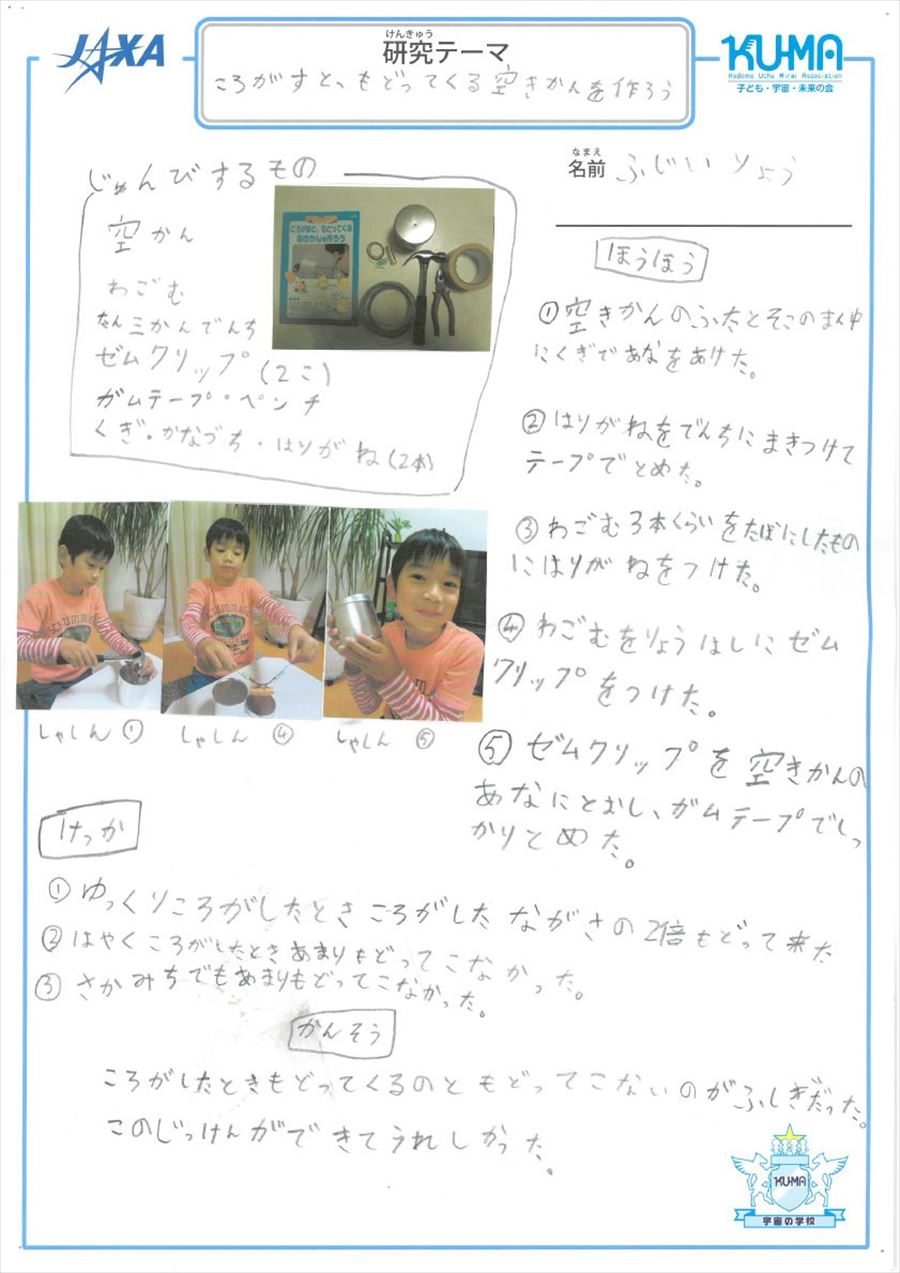 JAXA
けんきゅう
研究テーマ
ころがすと、もどってくる空きかんを作ろう
KUMA
Kodomo Uchu Mirai Association
子ども・宇宙・未来の会
なまえ
名前 ふじい りょう
じゅんびするもの
空かん
わごむ
たん三かんでんち
ゼムクリップ(2こ)
ガムテープ・ペンチ
くぎ・かなづち・はりがね(2本)
ころがすと、もどってくる
空きかんを作ろう
ほうほう
①空きかんのふたとそこのまん中
にくぎであなをあけた。
②はりがねをでんちにまきつけて
テープでとめた。
③わごむ3本くらいをたばにしたもの
にはりがねをつけた。
④わごむをりょうはしにゼム
クリップをつけた。
⑤ゼムクリップを空きかんの
あなにとおし、ガムテープでしっ
かりとめた。
しゃしん① しゃしん④ しゃしん⑤
けっか
①ゆっくりころがしたときころがしたながさの2倍もどって来た
②はやくころがしたときあまりもどってこなかった。
③さかみちでもあまりもどってこなかった。
かんそう
ころがしたときもどってくるのともどってこないのがふしぎだった。
このじっけんができてうれしかった。
KUMA
宇宙の学校